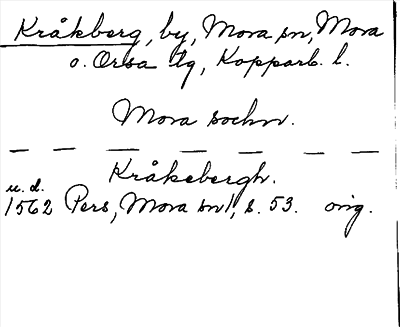 Kråkberg, by, Mora sn, Mora
o. Orsa tg, Kopparb. l.
Mora sockn.
Kråkebergh.
u. d.
1562 Pers, Mora sn 1, s. 53. orig.